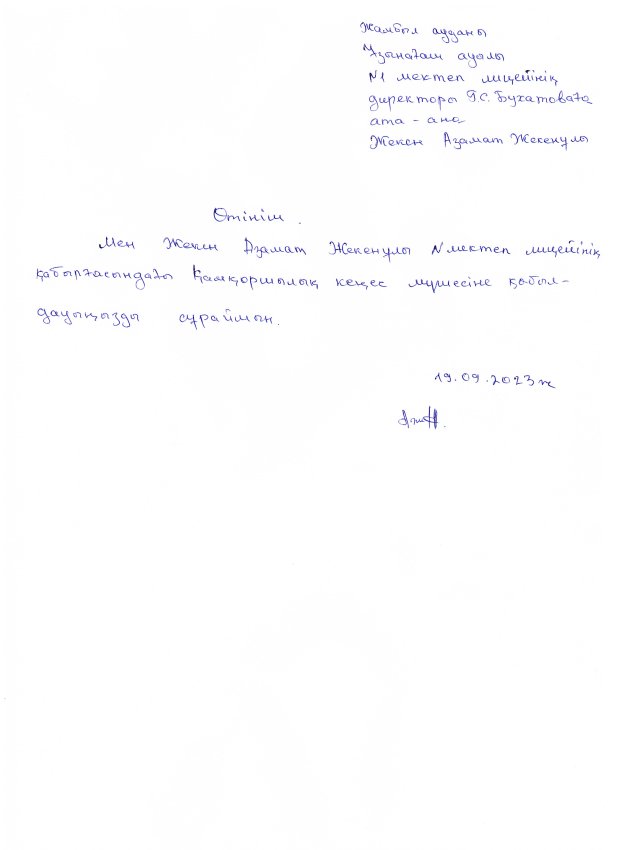 Жамбыл ауданы
Ұзынағаш ауылы
N1 мектеп лицейінің
директоры Г.С. Бухатоваға
ата - ана
Жекен Азамат Жекенұлы
Өтініш.
Мен Жекен Азамат Жекенұлы N мектеп лицейінің
қабырғасындағы Қамқоршылық кеңес мүшесіне қабыл-
дауыңызды сұраймын.
19.09.2023ж